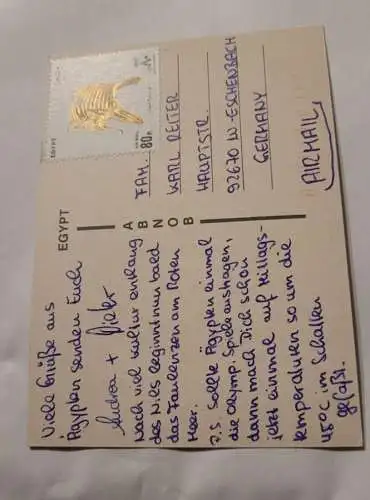 EGYPT
Viele Grüße aus
Ägypten senden Euch
Andrea + Dieter
Nach viel Kultur entlang
des Nils beginnt nun bald
das Faulenzen am Roten
Meer.
P.S. Sollte Ägypten einmal
die Olymp. Spiele austragen,
dann mach Dich schon
jetzt einmal auf Mittags-
temperaturen so um die
48°C im Schatten
gefaßt.
A
B
N
O
B
EGYPT
80 P.
FAM.
KARL REITER
HAUPTSTR.
92670 W.-ESCHENBACH
GERMANY
AIRMAIL